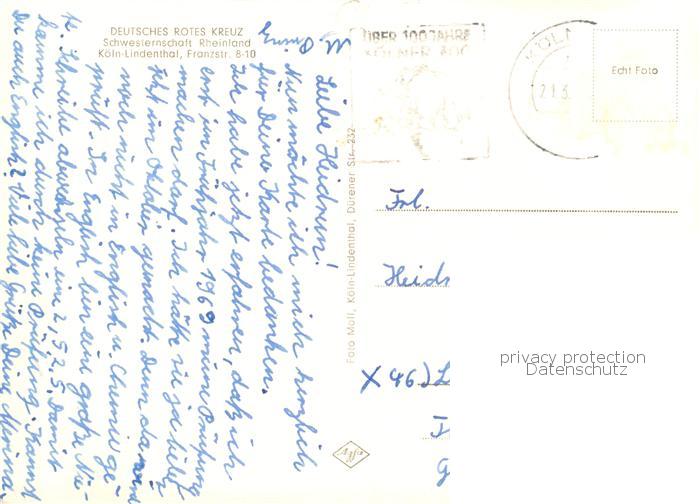 DEUTSCHES ROTES KREUZ
Schwesternschaft Rheinland
Köln-Lindenthal, Franzstr. 8-10
Liebe Heidrun!
Nun möchte ich mich herzlich
für Deine Karte bedanken.
Ich habe jetzt erfahren, daß ich
erst im Frühjahr 1969 meine Prüfung
machen darf. Ich hätte sie ja
jetzt im Oktober gemacht. Denn da
noch nicht in English u. Chemie ge-
prüft. In English bin eine große Nie-
te. Schreibe abwechselnd 2, 5, 2, 5. Damit
komme ich durch keine Prüfung. Kannst
Du auch English? Viele liebe Grüße Deine
Foto Moll, Köln-Lindenthal, Dürener Str. 232
ÜBER 100 JAHRE
KÖLNER ZOO
KÖLN
21.3
Echt Foto
Frl.
Heid
X 46) L
Agfa
privacy protection
Datenschutz